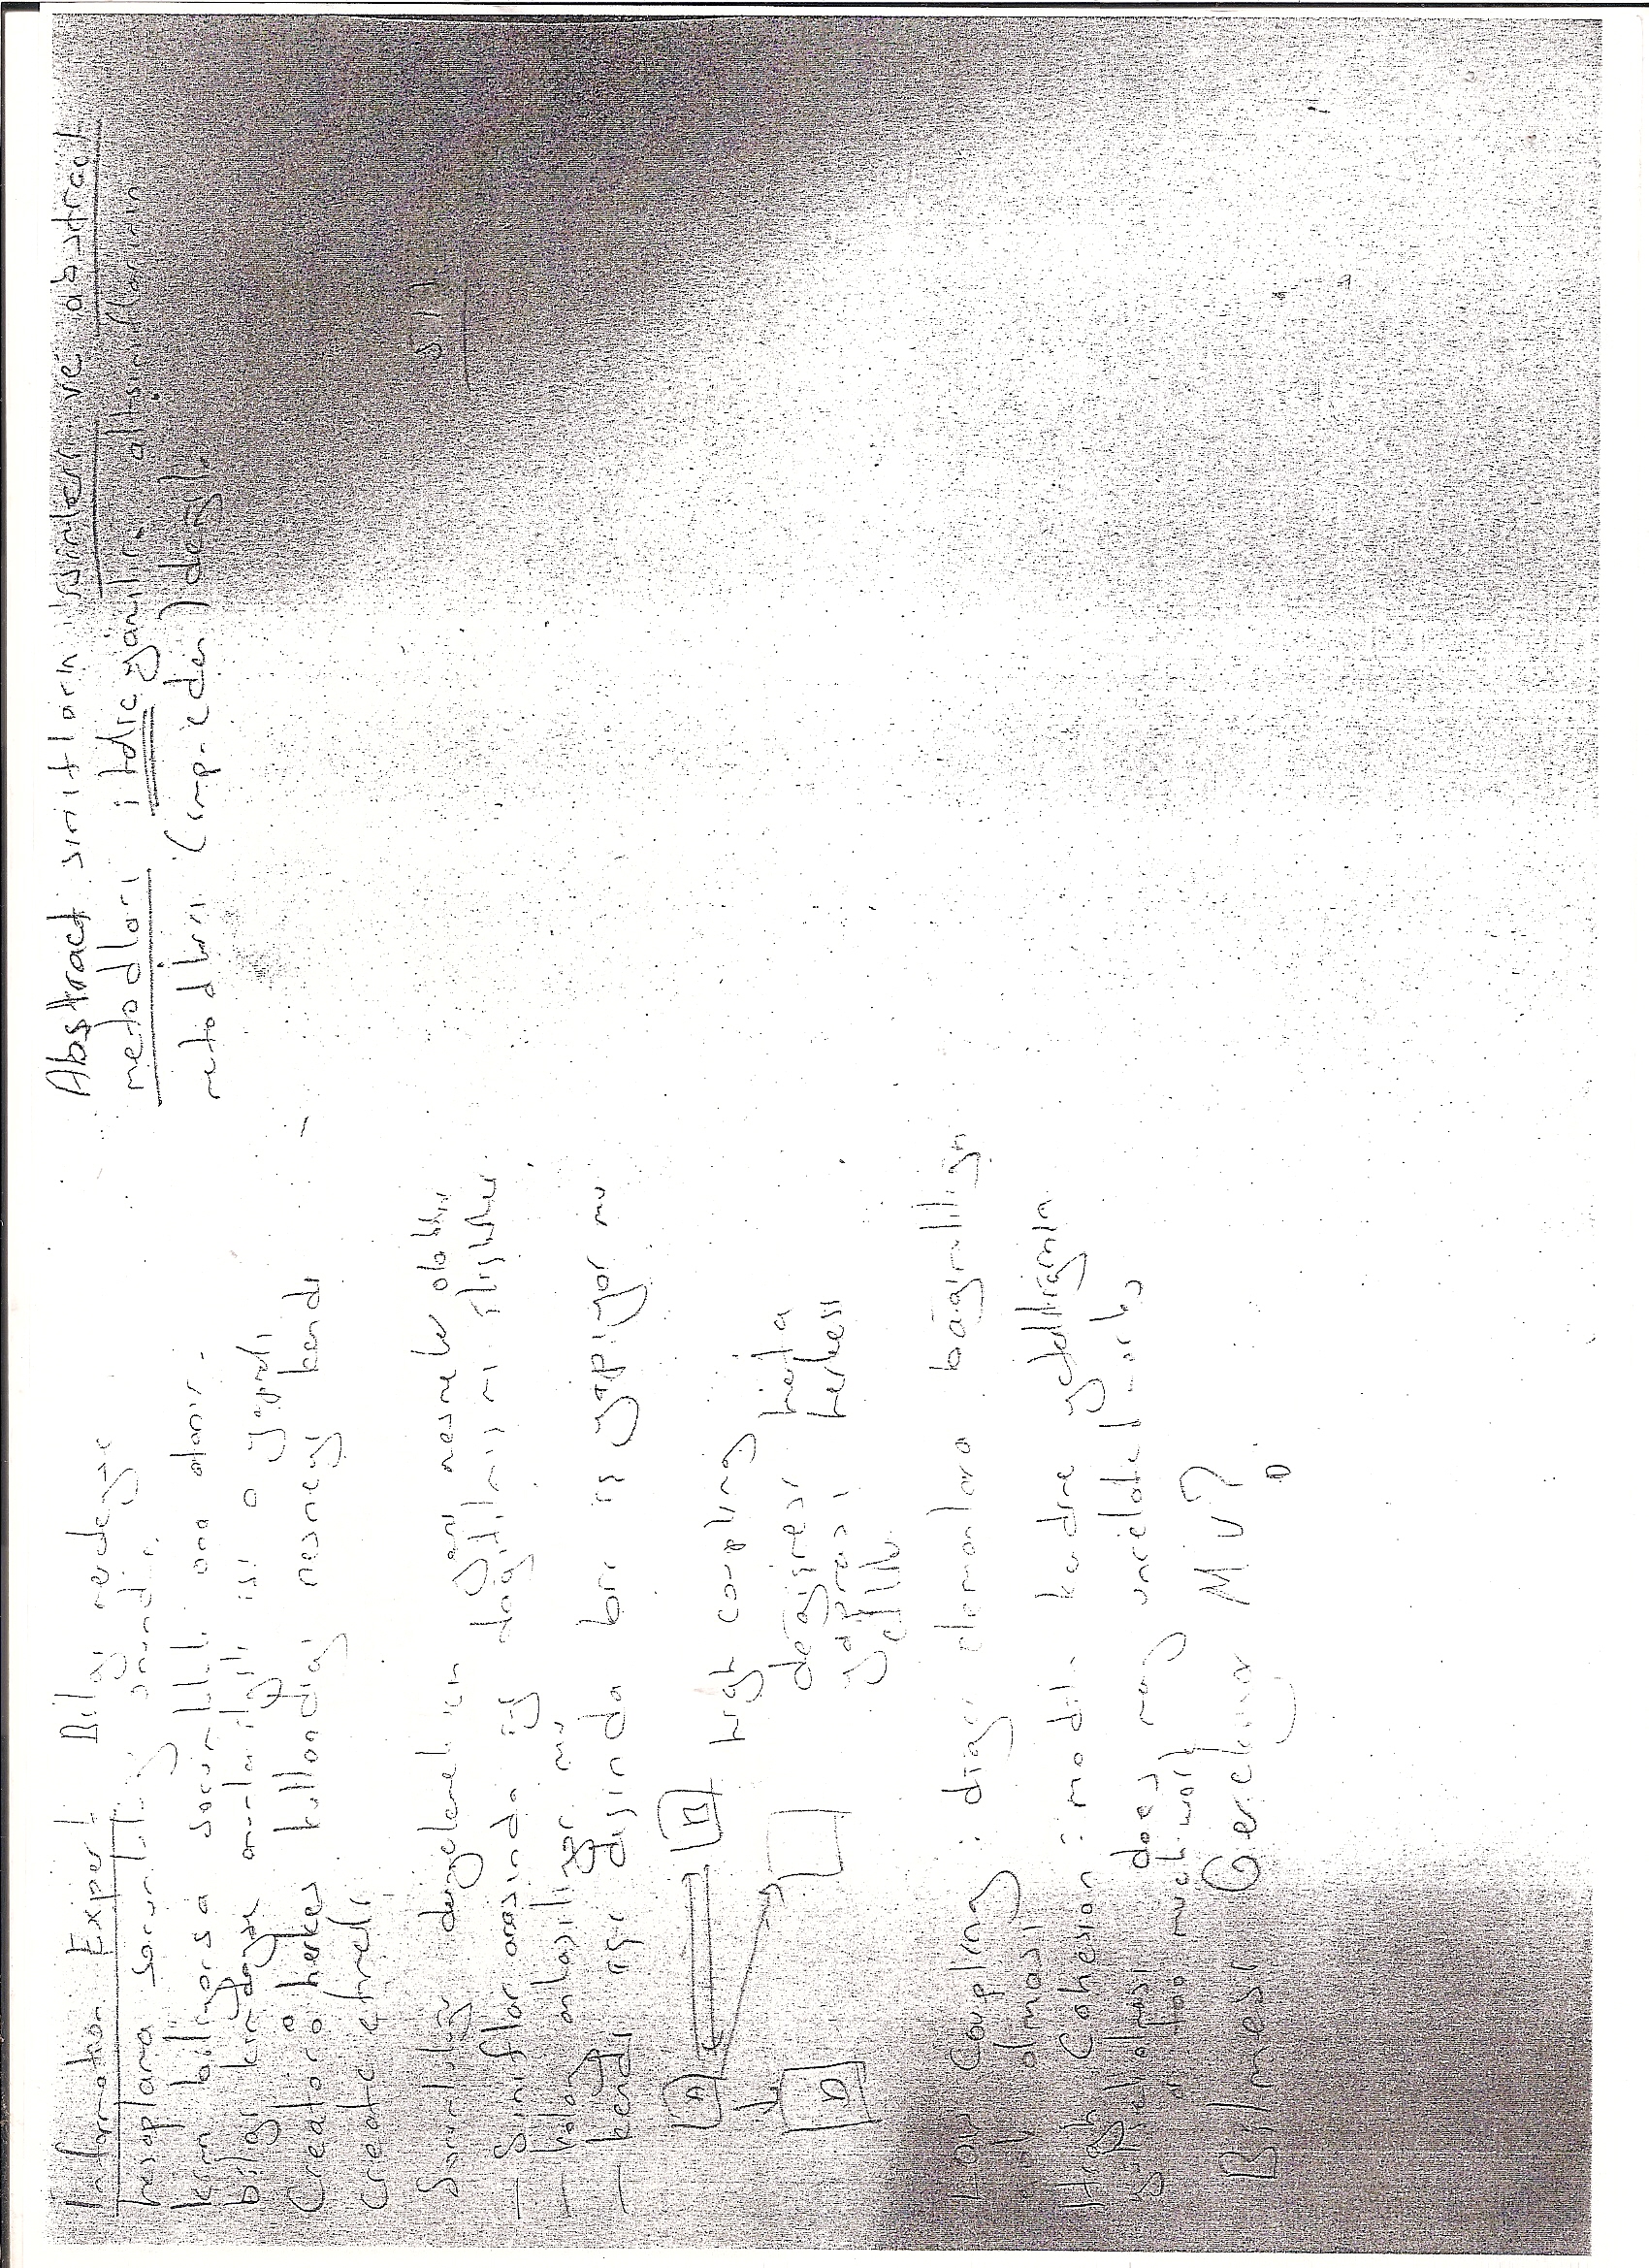 Information Expert: Bilgi nerdeyse
hesaplama sorumluluğu ondadır.
Kim biliyorsa sorumluluk ona atanır.
bilgi kimdeyse onunla ilgili işi o yapmalı
Creator: o herkes kullandığı nesneyi kendi
create etmeli
Sorumluluğu değerlendirirken yani nesneler
- Sınıflar arasında iş dağıtılmış mı
- kolay anlaşılıyor mu
- kendi işi dışında bir iş yapıyor mu
A B
High coupling
değişirse hata
yaparsa herkesi
etkiler
D
Low Coupling : diğer elemanlara bağımlılığın
az olması
High Cohesion : modülün kendine yettiğinin
does many unrelated works
or too much work
Bilmesi Gerekiyor Mu?
Abstract sınıfların isimleri ve abstract
metodları italic yazılır. alt sınıflarının
metodları (implicden) değil.